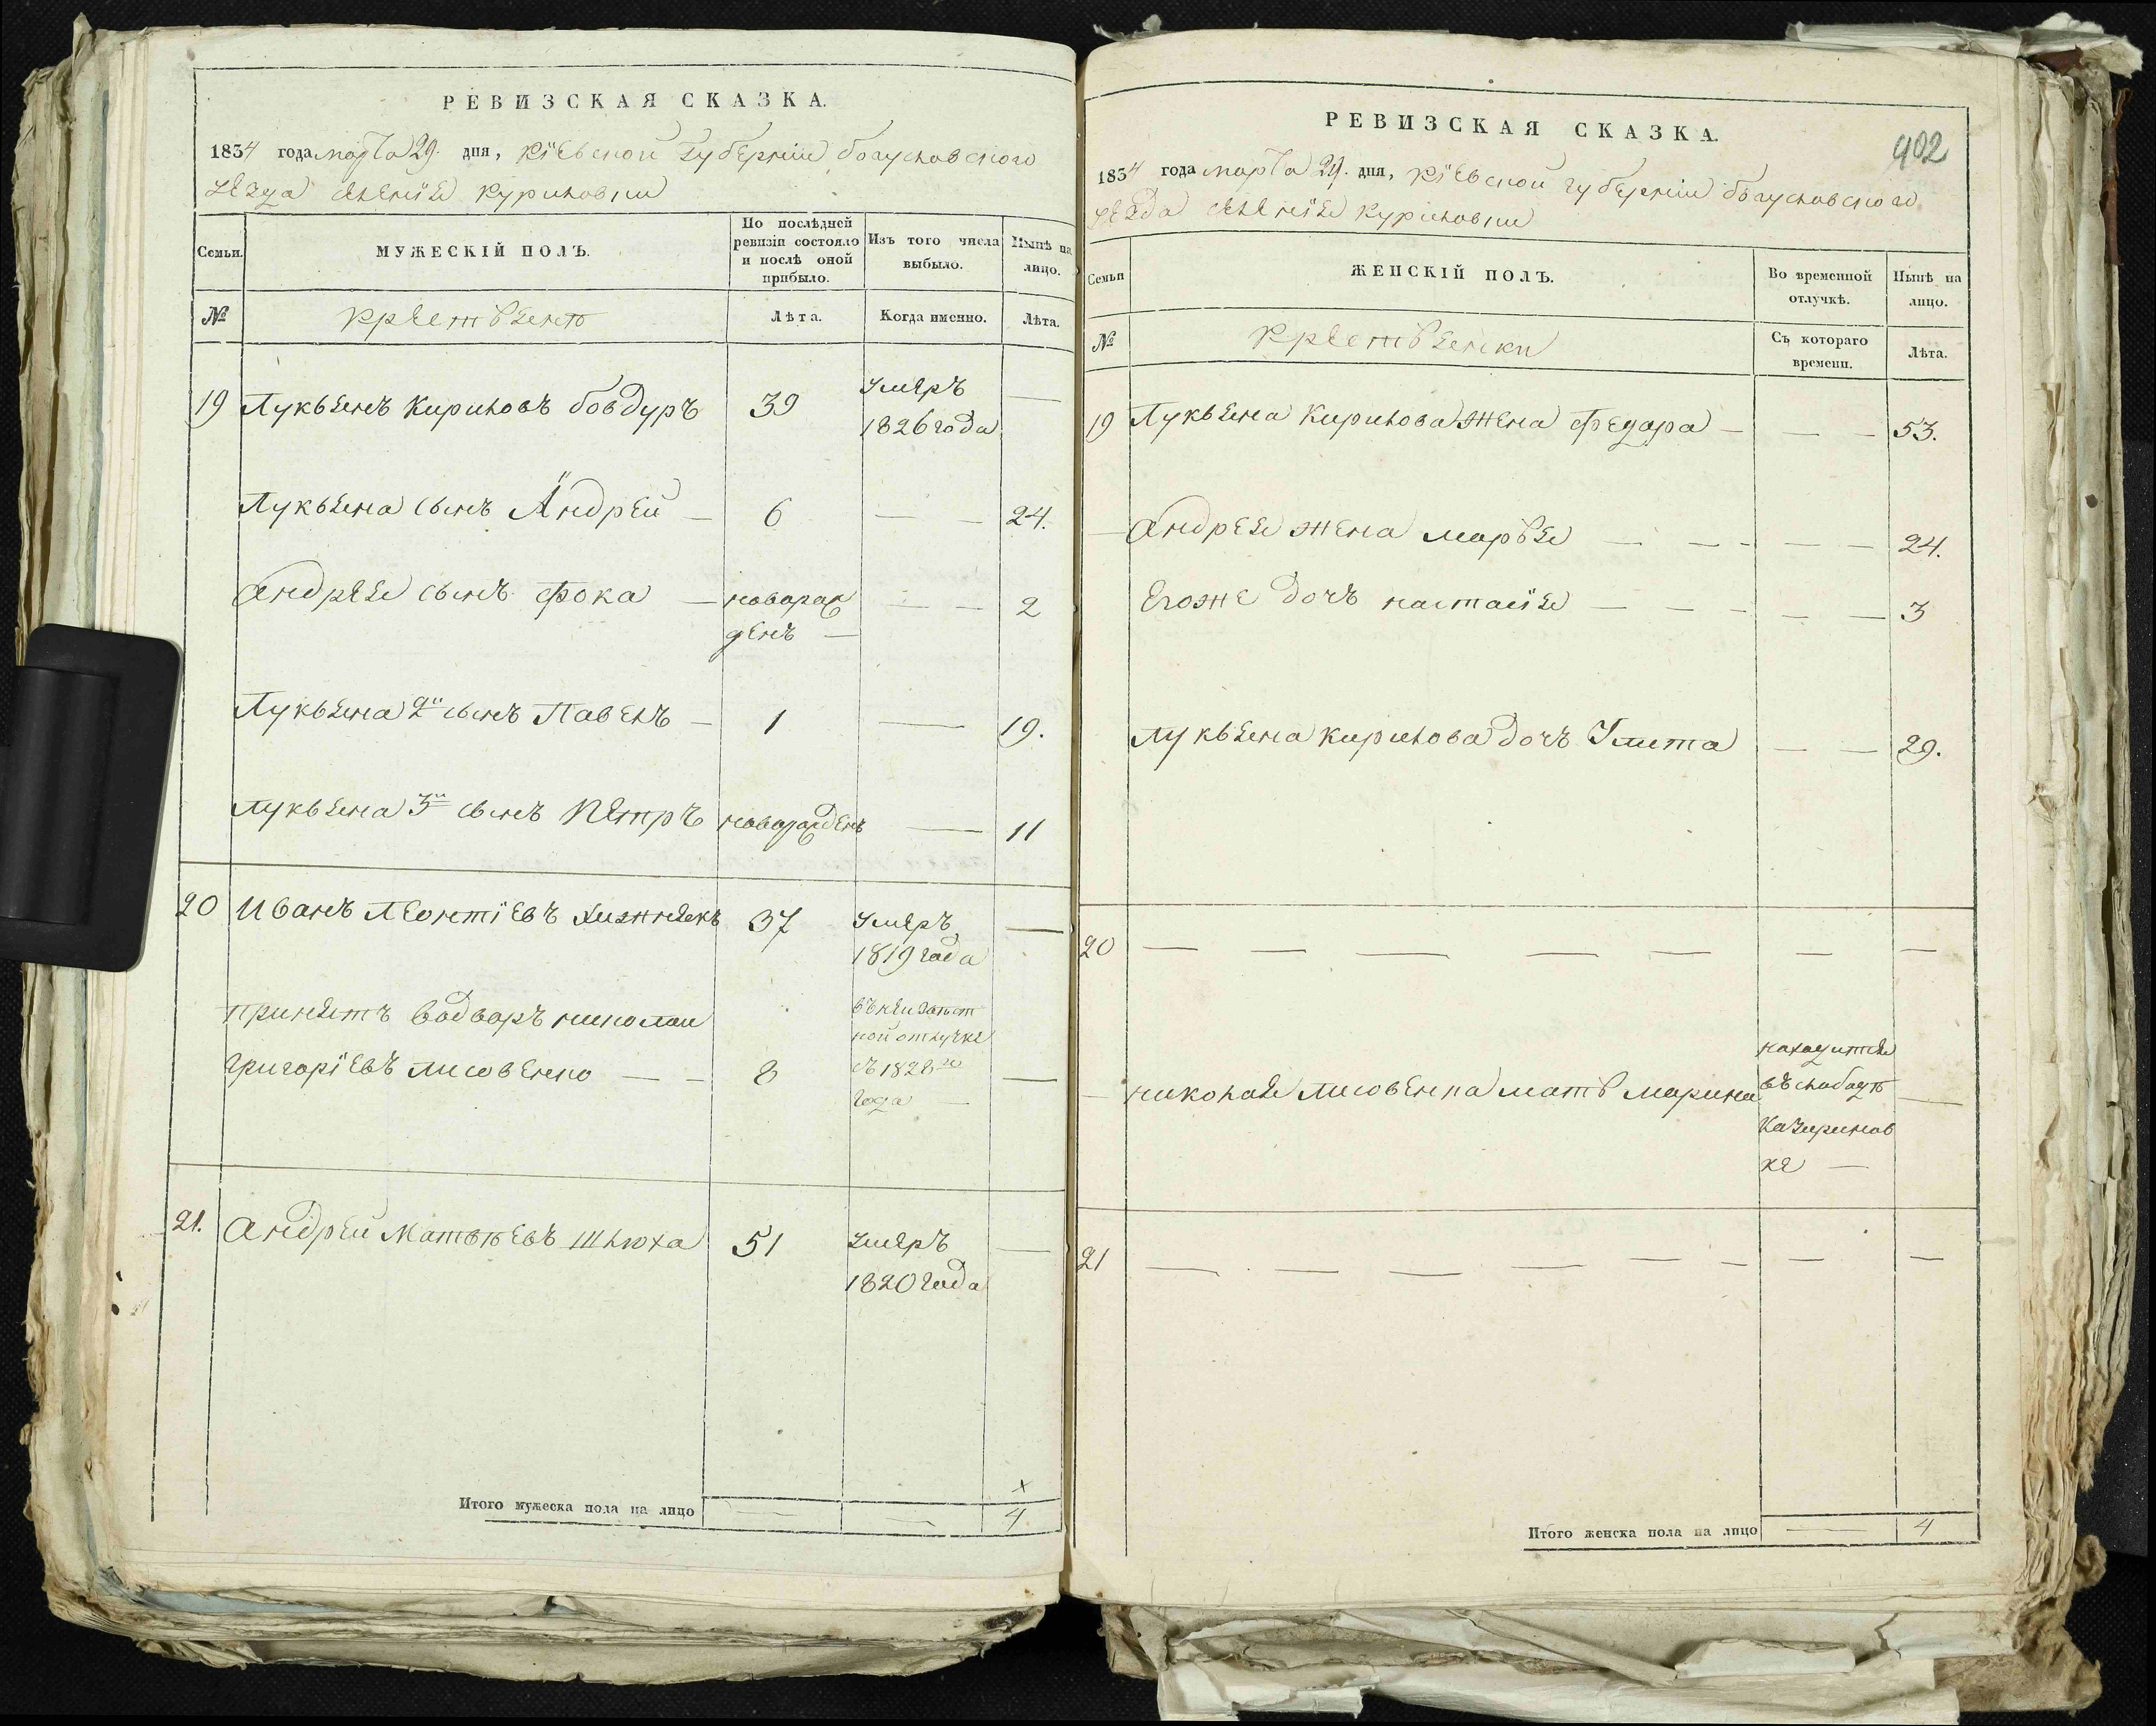 РЕВИЗСКАЯ СКАЗКА.
1834 года марта 29. дня, Кіевской губерніи богуславского
уезда селенія Куриловки
Семьи.
МУЖЕСКІЙ ПОЛЪ.
По послѣдней ревизіи состояло и послѣ оной прибыло.
Изъ того числа выбыло.
Нынѣ на лицо.
№
Крестьяне
Лѣта.
Когда именно.
Лѣта.
19 Лукьянъ Кириловъ бовдуръ 39 умеръ 1826 года —
Лукьяна сынъ Андрей — 6 — — 24.
Андрея сынъ Фока — новорожденъ — — — 2
Лукьяна 2й сынъ Павелъ — 1 — 19.
Лукьяна 3й сынъ Петръ новорожденъ — 11
20 Иванъ Леонтіевъ Хижнякъ 37 умеръ 1819 года —
принятъ водворъ николай
Григоріевъ Лисовенко — — 8 отлучке съ 1828го года — —
21. Андрей Матвѣевъ Шлюха 51 умеръ 1820 года —
Итого мужеска пола на лицо — — 4
РЕВИЗСКАЯ СКАЗКА.
402
1834 года марта 29. дня, Кіевской губерніи богуславского
уезда селенія Куриловки
Семьи
ЖЕНСКІЙ ПОЛЪ.
Во временной отлучкѣ.
Нынѣ на лицо.
№
Крестьянки
Съ котораго времени.
Лѣта.
19 Лукьяна Кирилова жена Федора — — — 53.
— Андрея жена марья — — — — — 24.
Егоже дочъ настасія — — — — — 3
Лукьяна Кирилова дочъ Улита — — 29.
20 — — — — — — —
— николая Лисовенка мать Марина находится въ слободѣ —
ке —
21 — — — — — — — —
Итого женска пола на лицо — 4